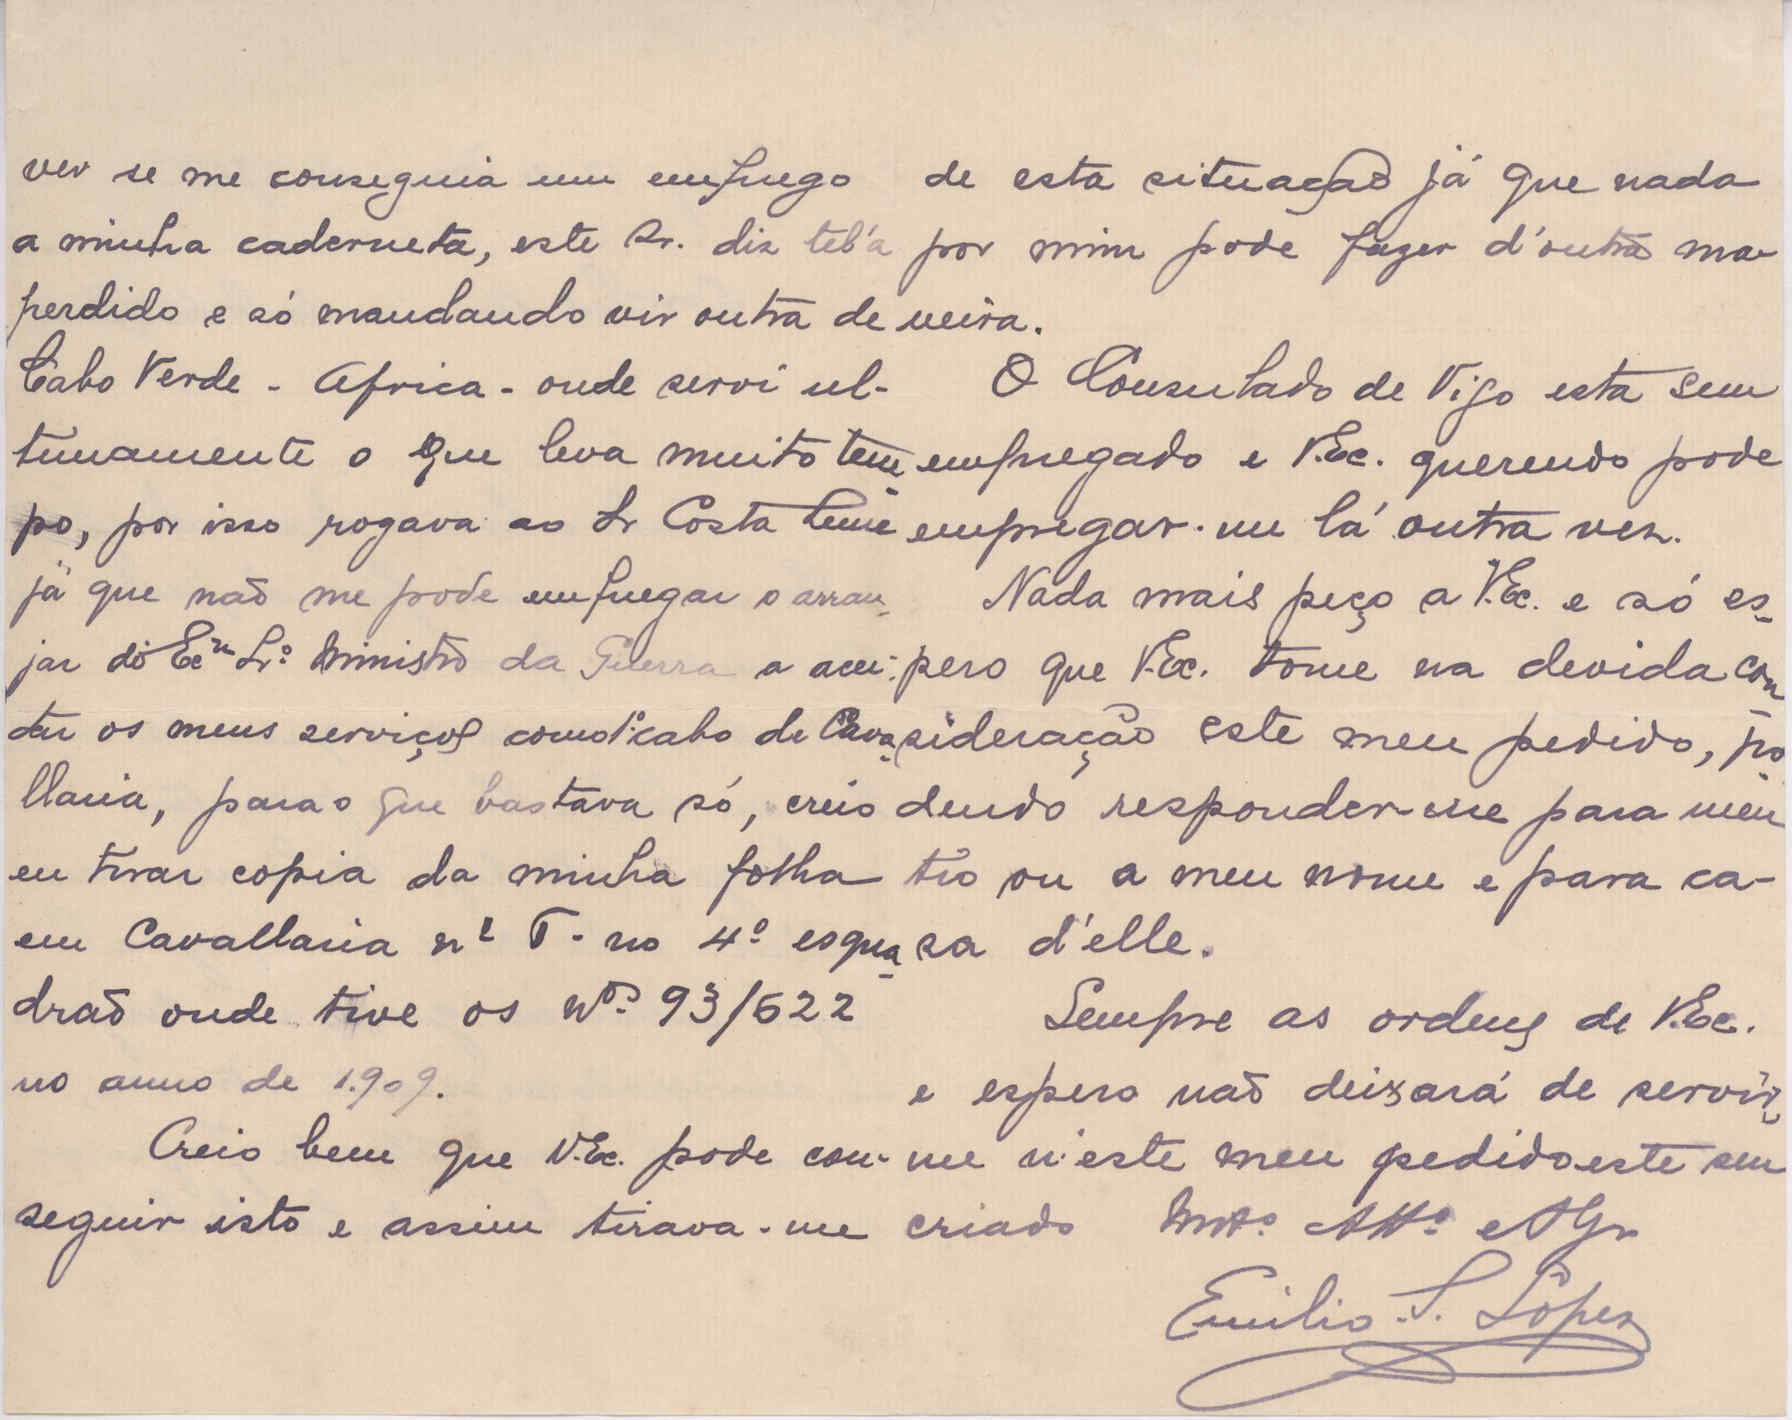 ver se me conseguia um emprego
a minha caderneta, este Sr. diz tel'a
perdido e só mandando vir outra de
Cabo Verde - Africa - onde servi ul-
timamente o que leva muito tem-
po, por isso rogava ao Sr Costa
já que não me pode empregar o arran-
jar do Ecmo Sr.º Ministro da Guerra a acei-
tar os meus serviços como 1º cabo de Cava-
llaria, para o que bastava só, creio
eu tirar copia da minha folha
em Cavallaria nº no 4º esqua-
drão onde tive os Nos. 93/622
no anno de 1.909.
Creio bem que V.Ec. pode con-
seguir isto e assim tirava-me
de esta situação já que nada
por mim pode fazer d'outra ma-
neira.
O Consulado de Vigo esta sem
empregado e V.Ec. querendo pode
empregar-me lá outra vez.
Nada mais peço a V.Ec. e só es-
pero que V.Ec. tome na devida con-
sideração este meu pedido, po-
dendo responder-me para meu
tio ou a meu nome e para ca-
sa d'elle.
Sempre as ordens de V.Ec.
e espero não deixará de servir-
me n'este meu pedido este seu
criado Mto. Atto.
Emilio S. Lópes